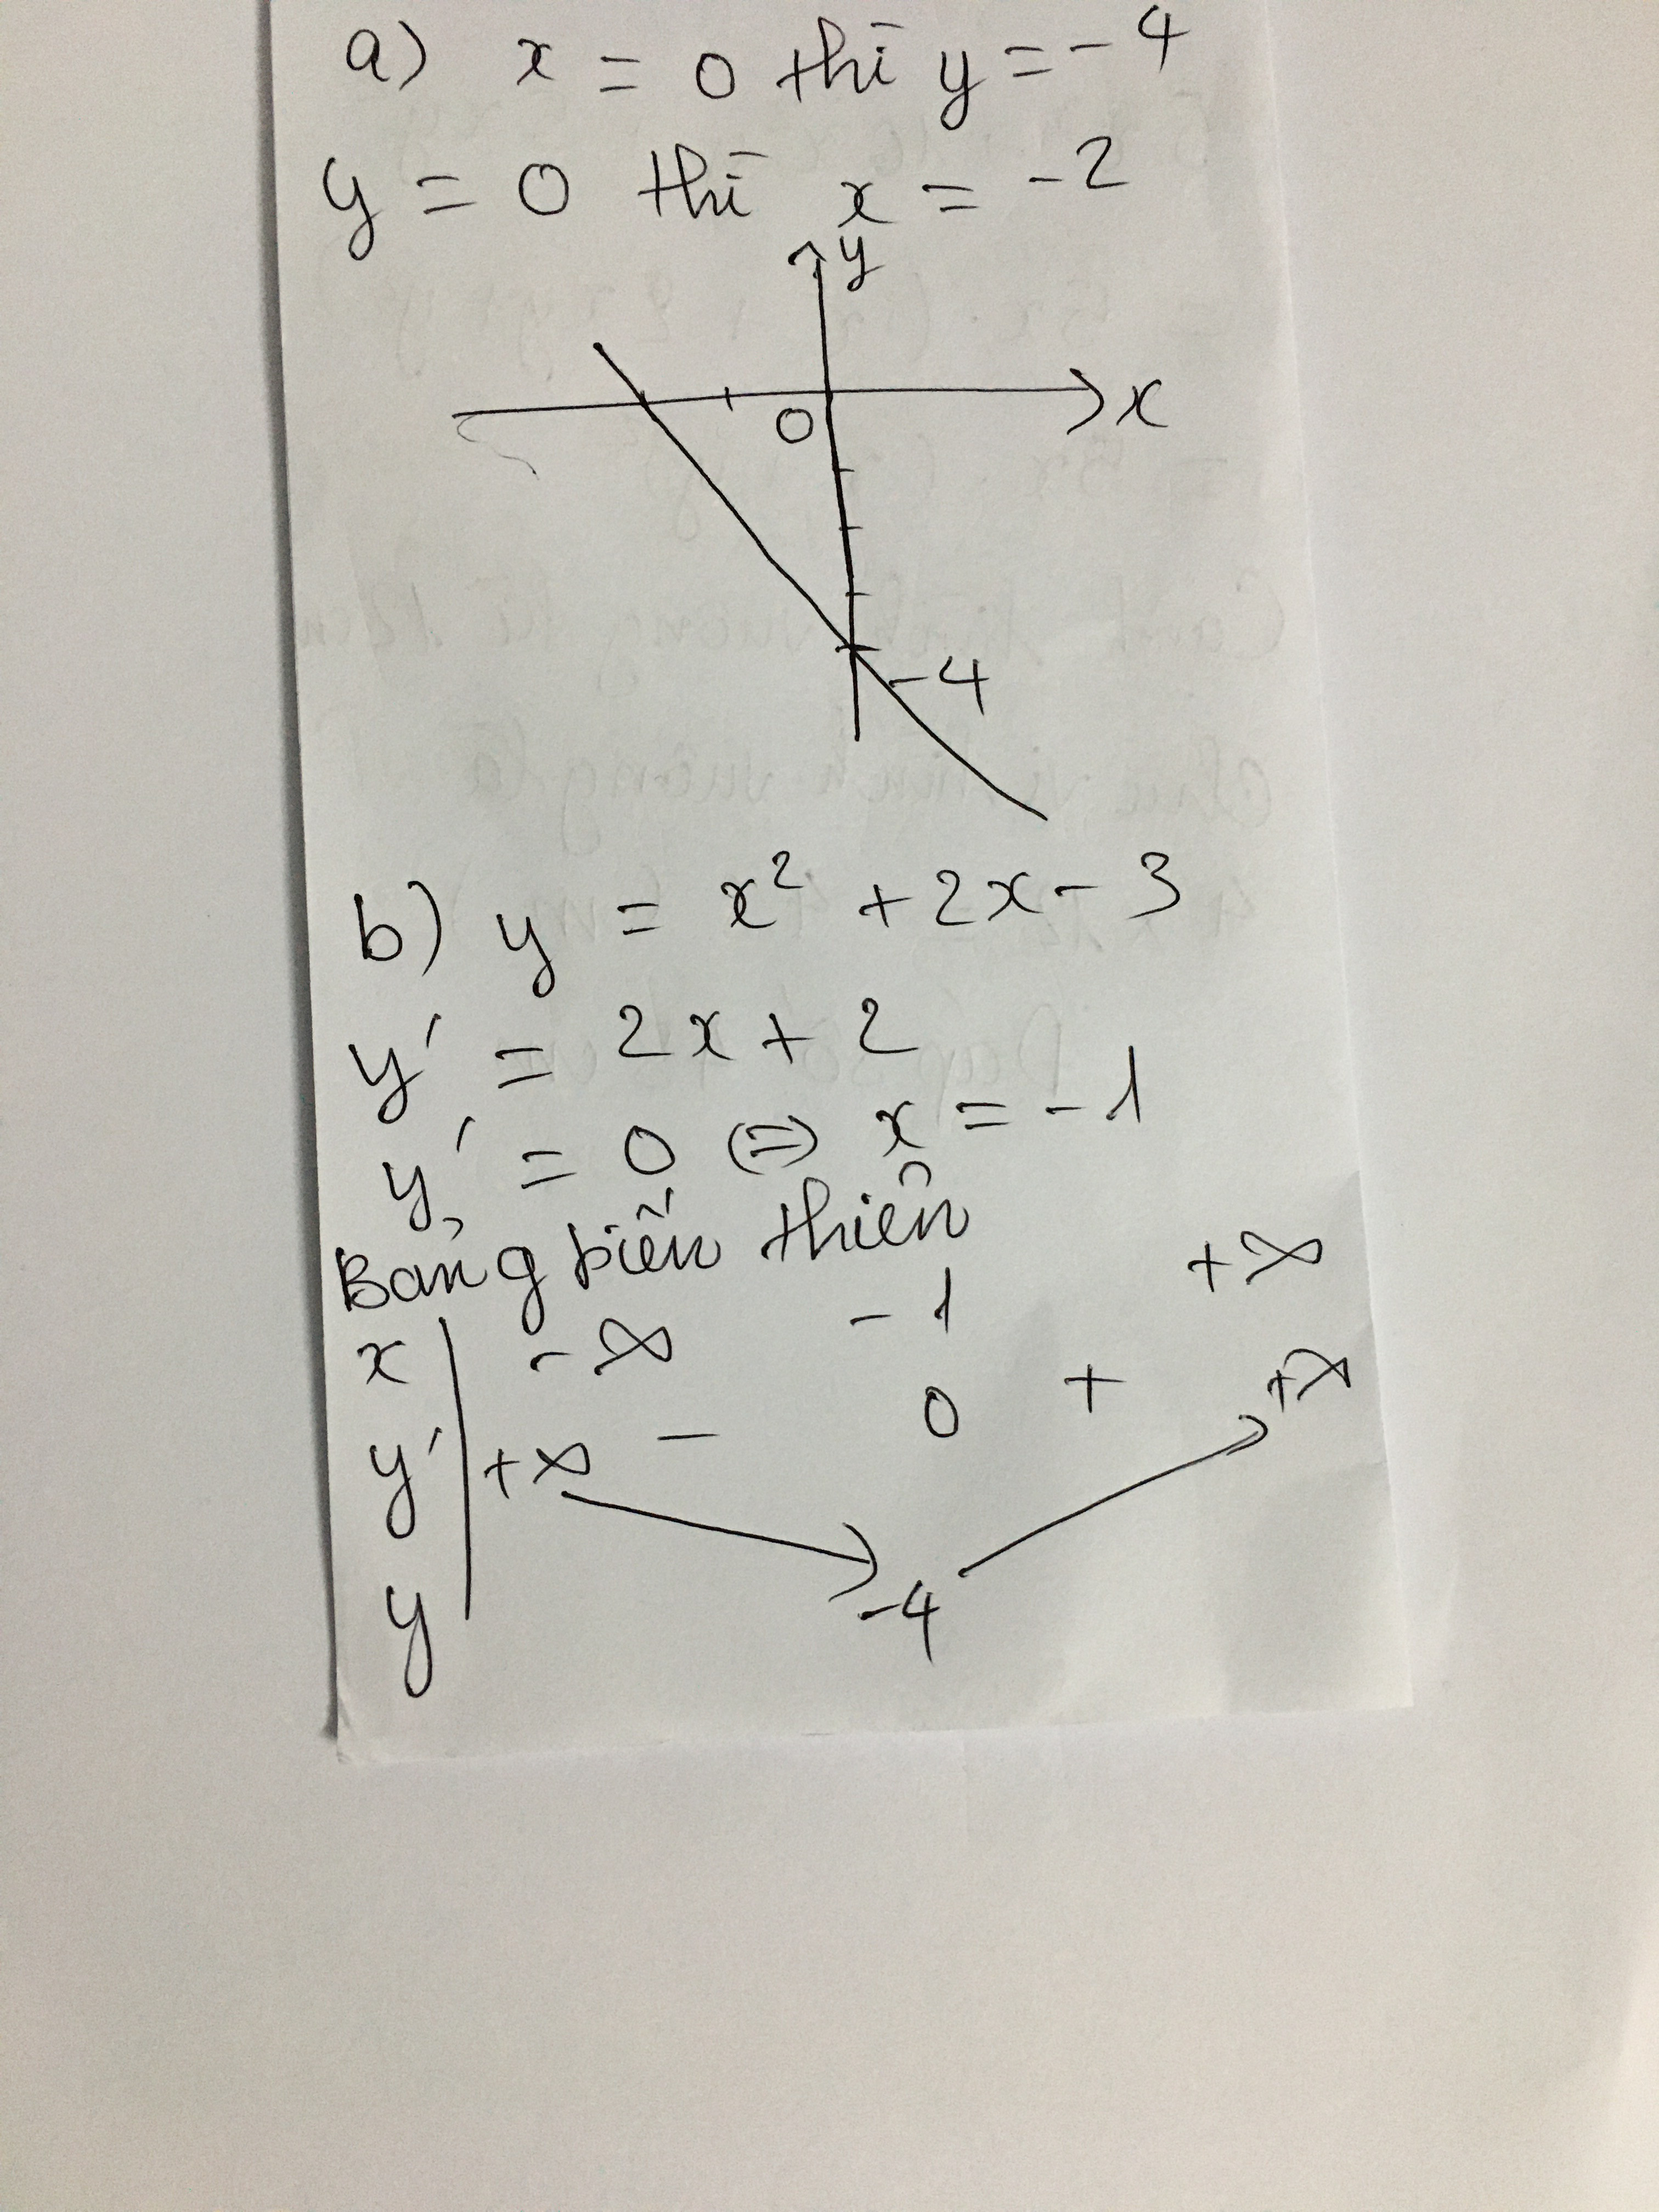 a) x = 0 thì y = -4
y = 0 thì x = -2
y
x
0
-4
b) y = x² + 2x - 3
y' = 2x + 2
y' = 0 (=) x = -1
Bảng biến thiên
x -∞ -1 +∞
y' - 0 +
y +∞ -4 +∞